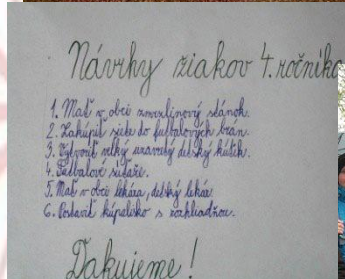 Návrhy žiakov 4. ročníka
1. Mať v obci zmrzlinový stánok.
2. Zakúpiť siete do futbalových brán.
3. Vytvoriť veľký uzavretý detský kútik.
4. Futbalové súťaže.
5. Mať v obci lekára, detský lekár.
6. Postaviť kúpalisko s rozhľadňou.
Ďakujeme!